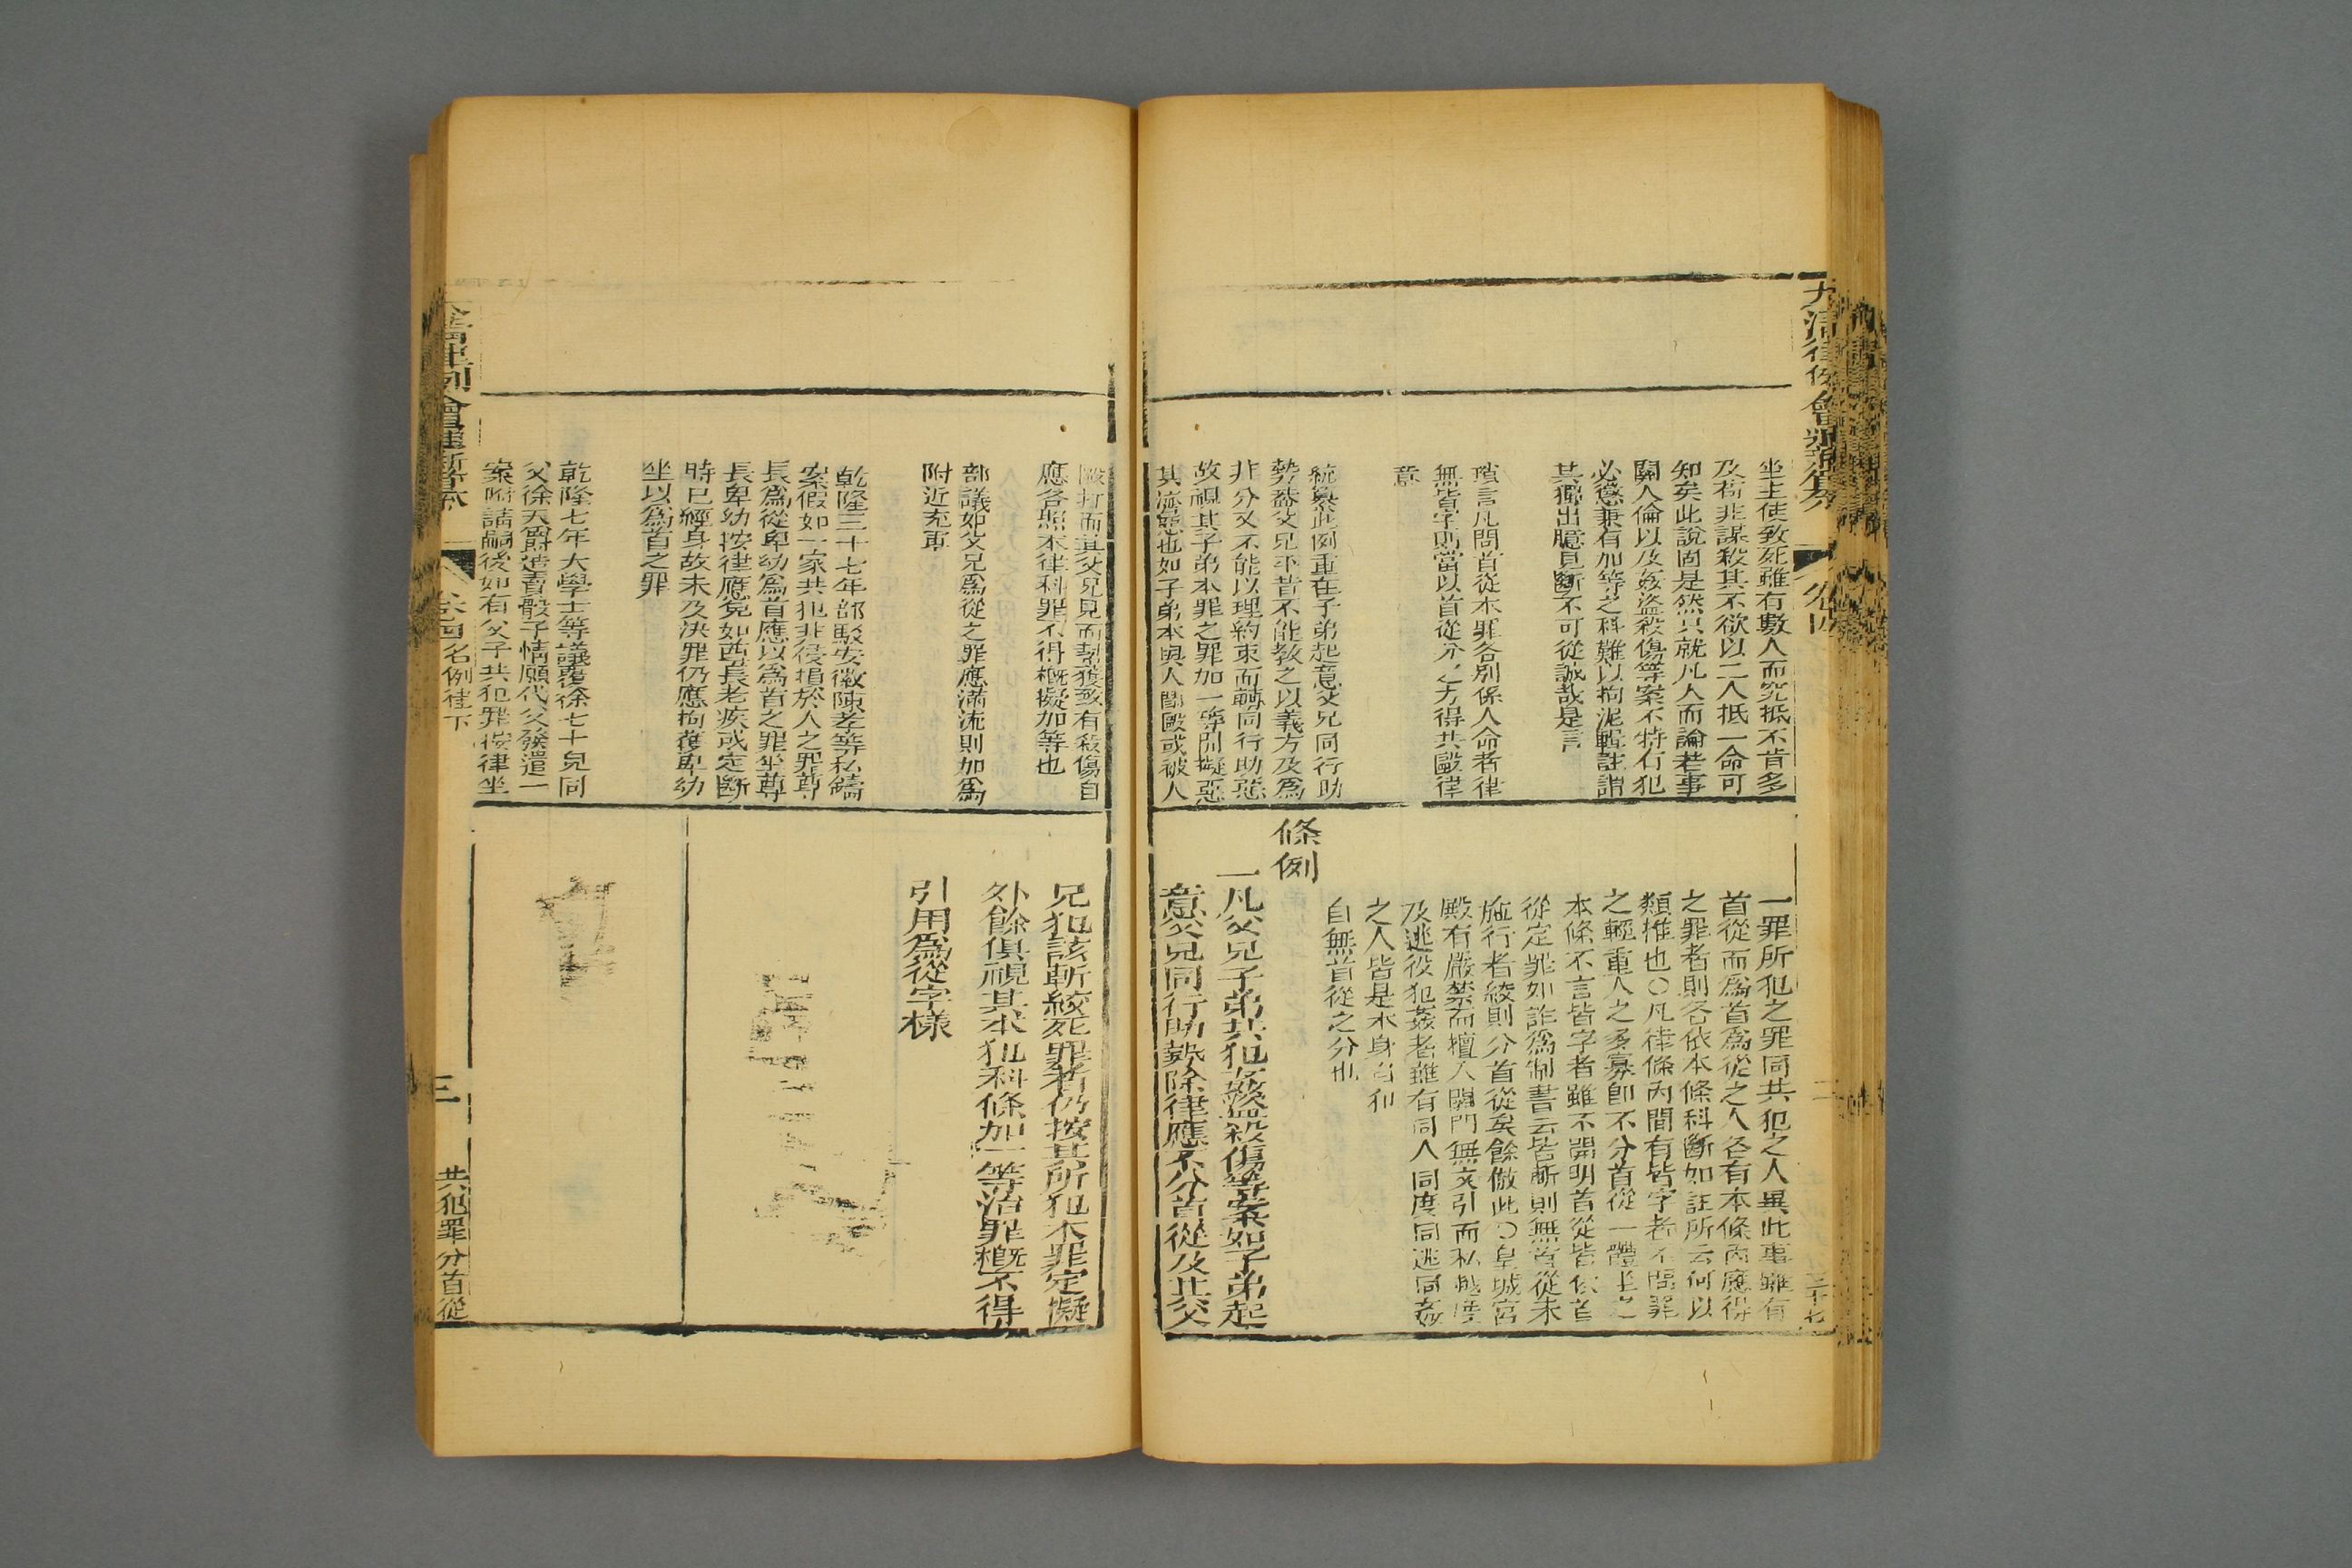 坐主使致死雖有數人而究抵不肯多
及苟非謀殺其不欲以二人抵一命可
知矣此說固是然只就凡人而論若事
關人倫以及姦盜殺傷等案不特有犯
必懲兼有加等之科難以拘泥輯註謂
其獨出臆見斷不可從誠哉是言
瑣言凡問首從本罪各別係人命者律
無皆字則當以首從分之方得共毆律
意
統纂此例重在子弟起意父兄同行助
勢蓋父兄平昔不能教之以義方及爲
非分又不能以理約束而轉同行助惡
故視其子弟本罪之罪加一等問擬惡
其濟惡也如子弟本與人鬪毆或被人
一罪所犯之罪同共犯之人異此事雖有
首從而爲首爲從之人各有本條內應得
之罪者則各依本條科斷如註所云何以
類推也〇凡律條內間有皆字者不問罪
之輕重人之多寡卽不分首從一體坐之
本條不言皆字者雖不開明首從皆依首
從定罪如詐爲制書云皆斬則無首從未
施行者絞則分首從矣餘倣此〇皇城宮
殿有嚴禁而擅入關門無文引而私越度
及逃役犯姦者雖有同人同度同逃同姦
之人皆是本身自犯
自無首從之分也
條例
一凡父兄子弟共犯姦盜殺傷等案如子弟起
意父兄同行助勢除律應不分首從及其父
大清律例會通新纂
卷四
三十七
毆打而其父兄見而幫護致有殺傷自
應各照本律科罪不得槪擬加等也
部議如父兄爲從之罪應滿流則加爲
附近充軍
乾隆三十七年部駁安徽陳老等私鑄
案假如一家共犯非侵損於人之罪尊
長爲從卑幼爲首應以爲首之罪坐尊
長卑幼按律應免如酉長老疾或定斷
時已經身故未及決罪仍應拘獲卑幼
坐以爲首之罪
乾隆七年大學士等議覆徐七十兒同
父徐天爵造賣骰子情願代父發遣一
案附請嗣後如有父子共犯罪按律坐
兄犯該斬絞死罪者仍按其所犯本罪定擬
外餘俱視其本犯科條加一等治罪槪不得
引用爲從字樣
卷四名例律下
三
共犯罪分首從